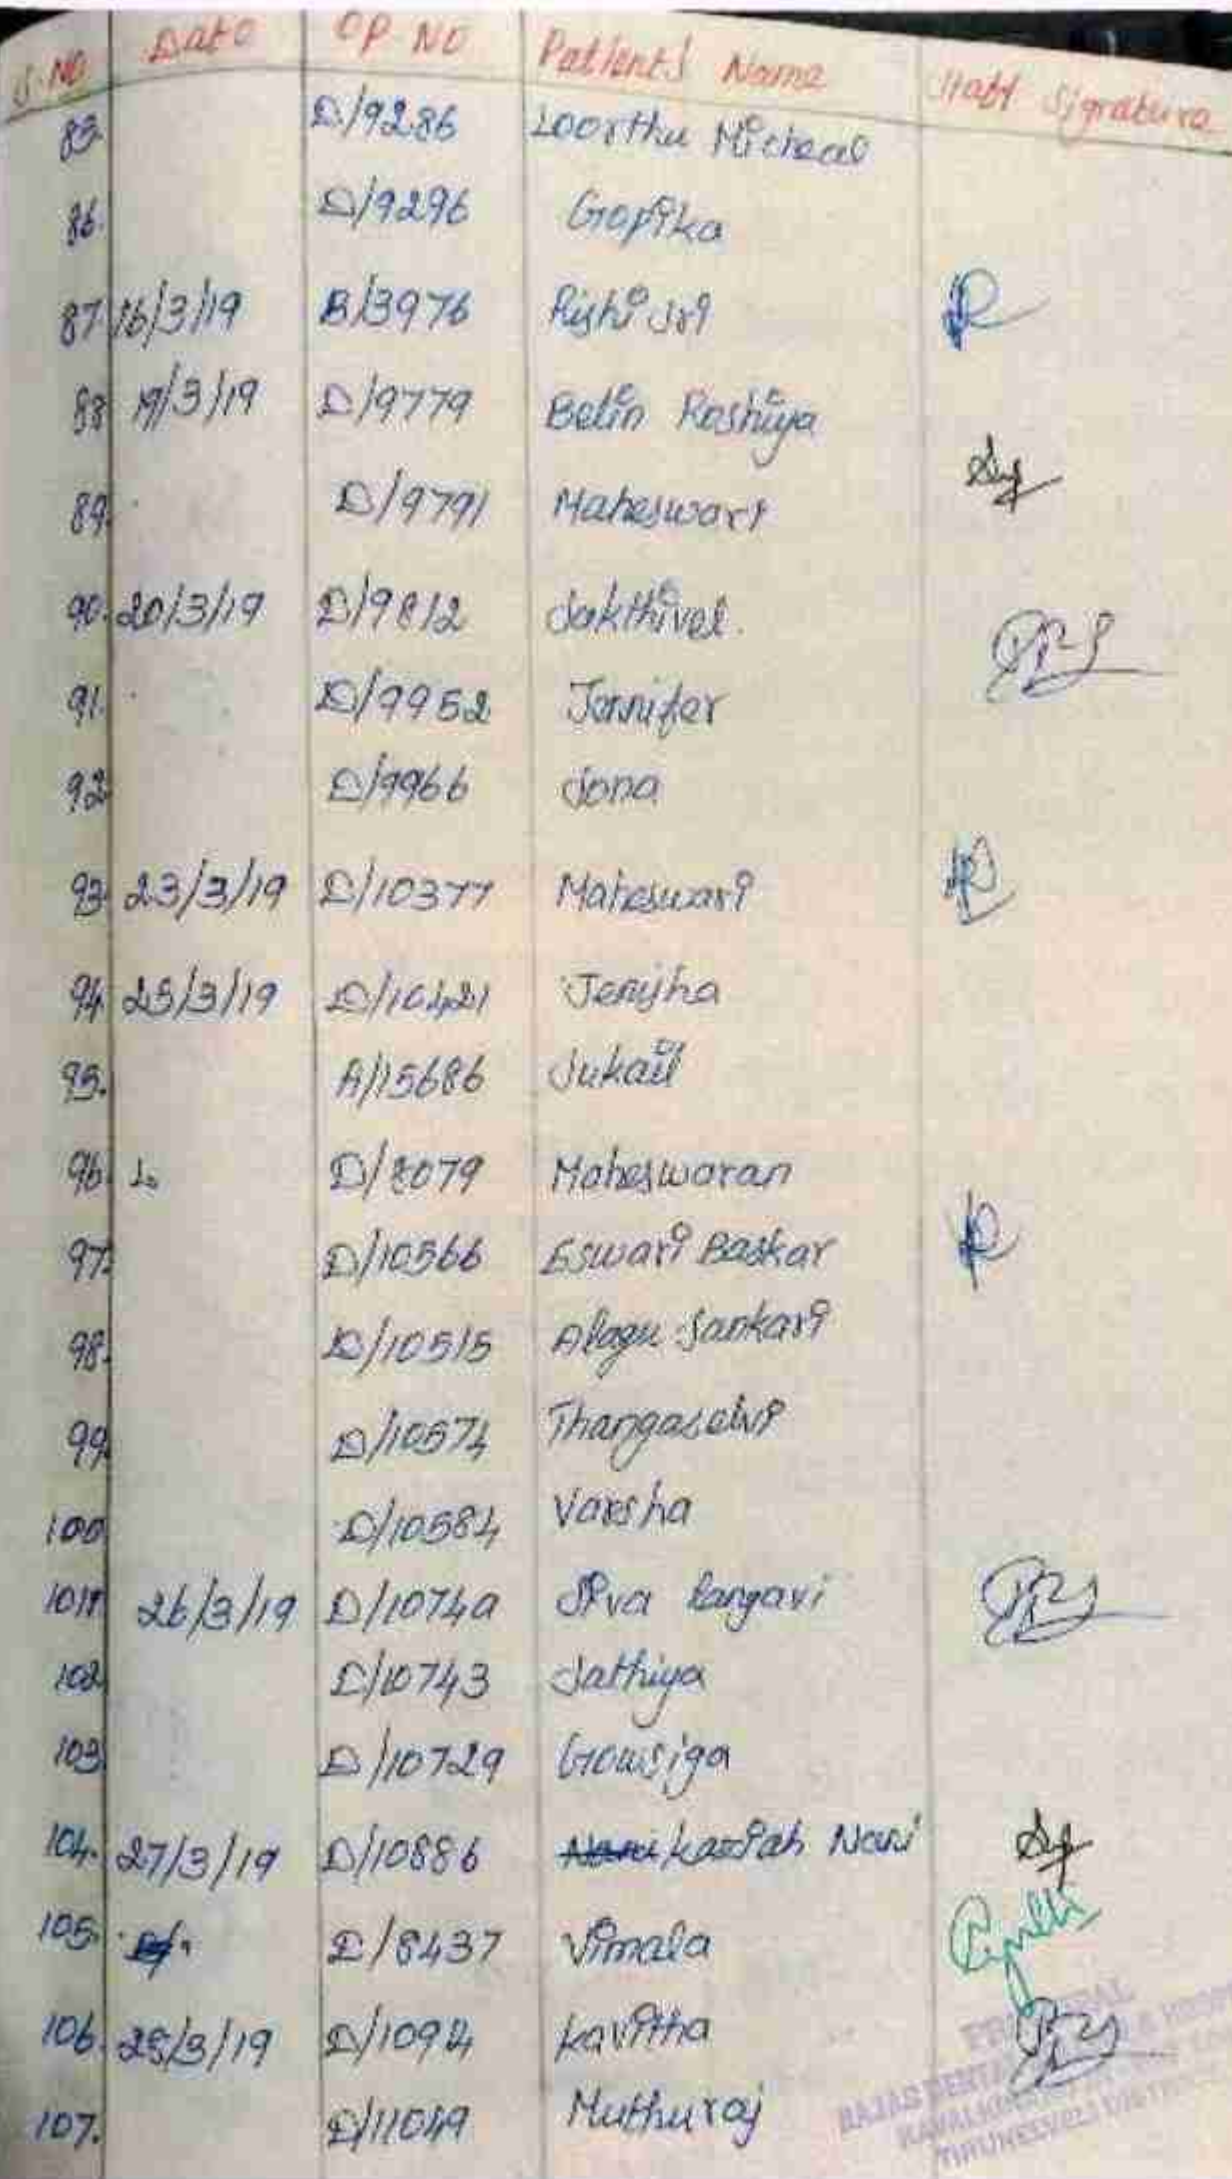 S.NO Date OP NO Patient's Name Staff Signature
85. D/9286 Loorthu Micheal
86. D/9296 Gopika
87. 16/3/19 B/3976 Rishi Sri
88 19/3/19 D/9779 Belin Roshiya
89. D/9791 Maheswari
90. 20/3/19 D/9812 Sakthivel.
91. D/9952 Jennifer
92 D/9966 Sona
93 23/3/19 D/10377 Maheswari
94 25/3/19 D/10421 Jenisha
95. A/15686 Sukail
96 D/8079 Maheswaran
97. D/10566 Eswari Baskar
98. D/10515 Alagu Sankari
99 D/10574 Thangaselvi
100 D/10584 Varsha
101 26/3/19 D/10740 Siva Rangavi
102 D/10743 Sathiya
103 D/10729 Gowsiga
104. 27/3/19 D/10886
105. D/8437 Vimala
106. 28/3/19 Kavitha
107. D/11049 Muthuraj
RAJAS DENTAL
TIRUNELVELI